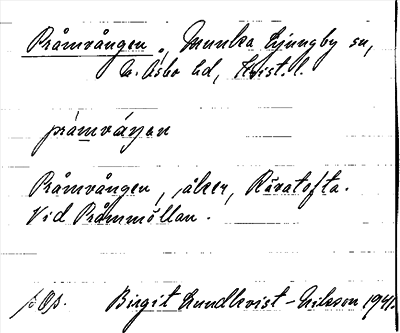 Pråmvången, Munka Ljungby sn,
N. Åsbo hd, Krist. l.
pråmváŋən
Pråmvången, åker, Rävatofta.
Vid Pråmmöllan.
Birgit Lundkvist-Nilsson 1941.